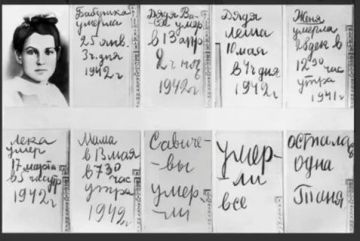 Бабушка
умерла
25 янв.
3 ч. дня
1942 г
Дядя Ва-
ся умер
в 13 апр
2 ч ноч
1942 г
Дядя
Леша
10 мая
в 4 ч дня
1942 г
Женя
умерла
28 дек в
12 30 час
утра
1941 г
Лека
умер
17 марта
в 5 час утр
1942 г
Мама
в 13 мая
в 7 30
час
утра
1942 г
Савиче-
-вы
умер-
-ли
умер-
ли
все
остала
одна
Таня